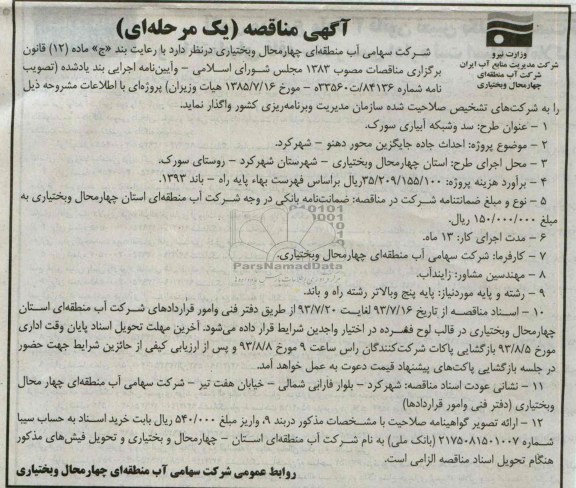 آگهی مناقصه (یک مرحله‌ای)
وزارت نیرو
شرکت مدیریت منابع آب ایران
شرکت آب منطقه‌ای
چهارمحال وبختیاری
شرکت سهامی آب منطقه‌ای چهارمحال وبختیاری درنظر دارد با رعایت بند «ج» ماده (۱۲) قانون
برگزاری مناقصات مصوب ۱۳۸۳ مجلس شورای اسلامی – وآیین‌نامه اجرایی بند یادشده (تصویب
نامه شماره ۸۴۱۳۶/ت۳۳۵۶۰ه – مورخ ۱۳۸۵/۷/۱۶ هیات وزیران) پروژه‌ای با اطلاعات مشروحه ذیل
را به شرکت‌های تشخیص صلاحیت شده سازمان مدیریت وبرنامه‌ریزی کشور واگذار نماید.
۱ – عنوان طرح: سد وشبکه آبیاری سورک.
۲ – موضوع پروژه: احداث جاده جایگزین محور دهنو – شهرکرد.
۳ – محل اجرای طرح: استان چهارمحال وبختیاری – شهرستان شهرکرد – روستای سورک.
۴ – برآورد هزینه پروژه: ۳۵/۲۰۹/۱۵۵/۱۰۰ریال براساس فهرست بهاء پایه راه – باند ۱۳۹۳.
۵ – نوع و مبلغ ضمانتنامه شرکت در مناقصه: ضمانت‌نامه بانکی در وجه شرکت آب منطقه‌ای استان چهارمحال وبختیاری به
مبلغ ۱۵۰/۰۰۰/۰۰۰ ریال.
۶ – مدت اجرای کار: ۱۳ ماه.
۷ – کارفرما: شرکت سهامی آب منطقه‌ای چهارمحال وبختیاری.
۸ – مهندسین مشاور: زایندآب.
۹ – رشته و پایه موردنیاز: پایه پنج وبالاتر رشته راه و باند.
۱۰ – اسناد مناقصه از تاریخ ۹۳/۷/۱۶ لغایت ۹۳/۷/۲۰ از طریق دفتر فنی وامور قراردادهای شرکت آب منطقه‌ای استان
چهارمحال وبختیاری در قالب لوح فشرده در اختیار واجدین شرایط قرار داده می‌شود. آخرین مهلت تحویل اسناد پایان وقت اداری
مورخ ۹۳/۸/۵ بازگشایی پاکات شرکت‌کنندگان راس ساعت ۹ مورخ ۹۳/۸/۸ و پس از ارزیابی کیفی از حائزین شرایط جهت حضور
در جلسه بازگشایی پاکت‌های پیشنهاد قیمت دعوت به عمل خواهد آمد.
۱۱ – نشانی عودت اسناد مناقصه: شهرکرد – بلوار فارابی شمالی – خیابان هفت تیر – شرکت سهامی آب منطقه‌ای چهار محال
وبختیاری (دفتر فنی وامور قراردادها)
۱۲ – ارائه تصویر گواهینامه صلاحیت با مشخصات مذکور دربند ۹، واریز مبلغ ۵۴۰/۰۰۰ ریال بابت خرید اسناد به حساب سیبا
شماره ۲۱۷۵۰۸۱۵۰۱۰۰۷ (بانک ملی) به نام شرکت آب منطقه‌ای استان – چهارمحال و بختیاری و تحویل فیش‌های مذکور
هنگام تحویل اسناد مناقصه الزامی است.
روابط عمومی شرکت سهامی آب منطقه‌ای چهارمحال وبختیاری
ParsNamadData